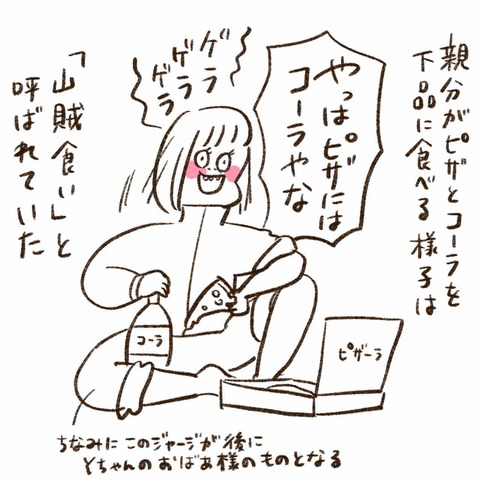 親分がピザとコーラを
下品に食べる様子は
やっぱピザには
コーラやな
ゲラ
ゲラ
ゲラ
「山賊食い」と
呼ばれていた
コーラ
ピザーラ
ちなみにこのジャージが後に
Yちゃんのおばあ様のものとなる